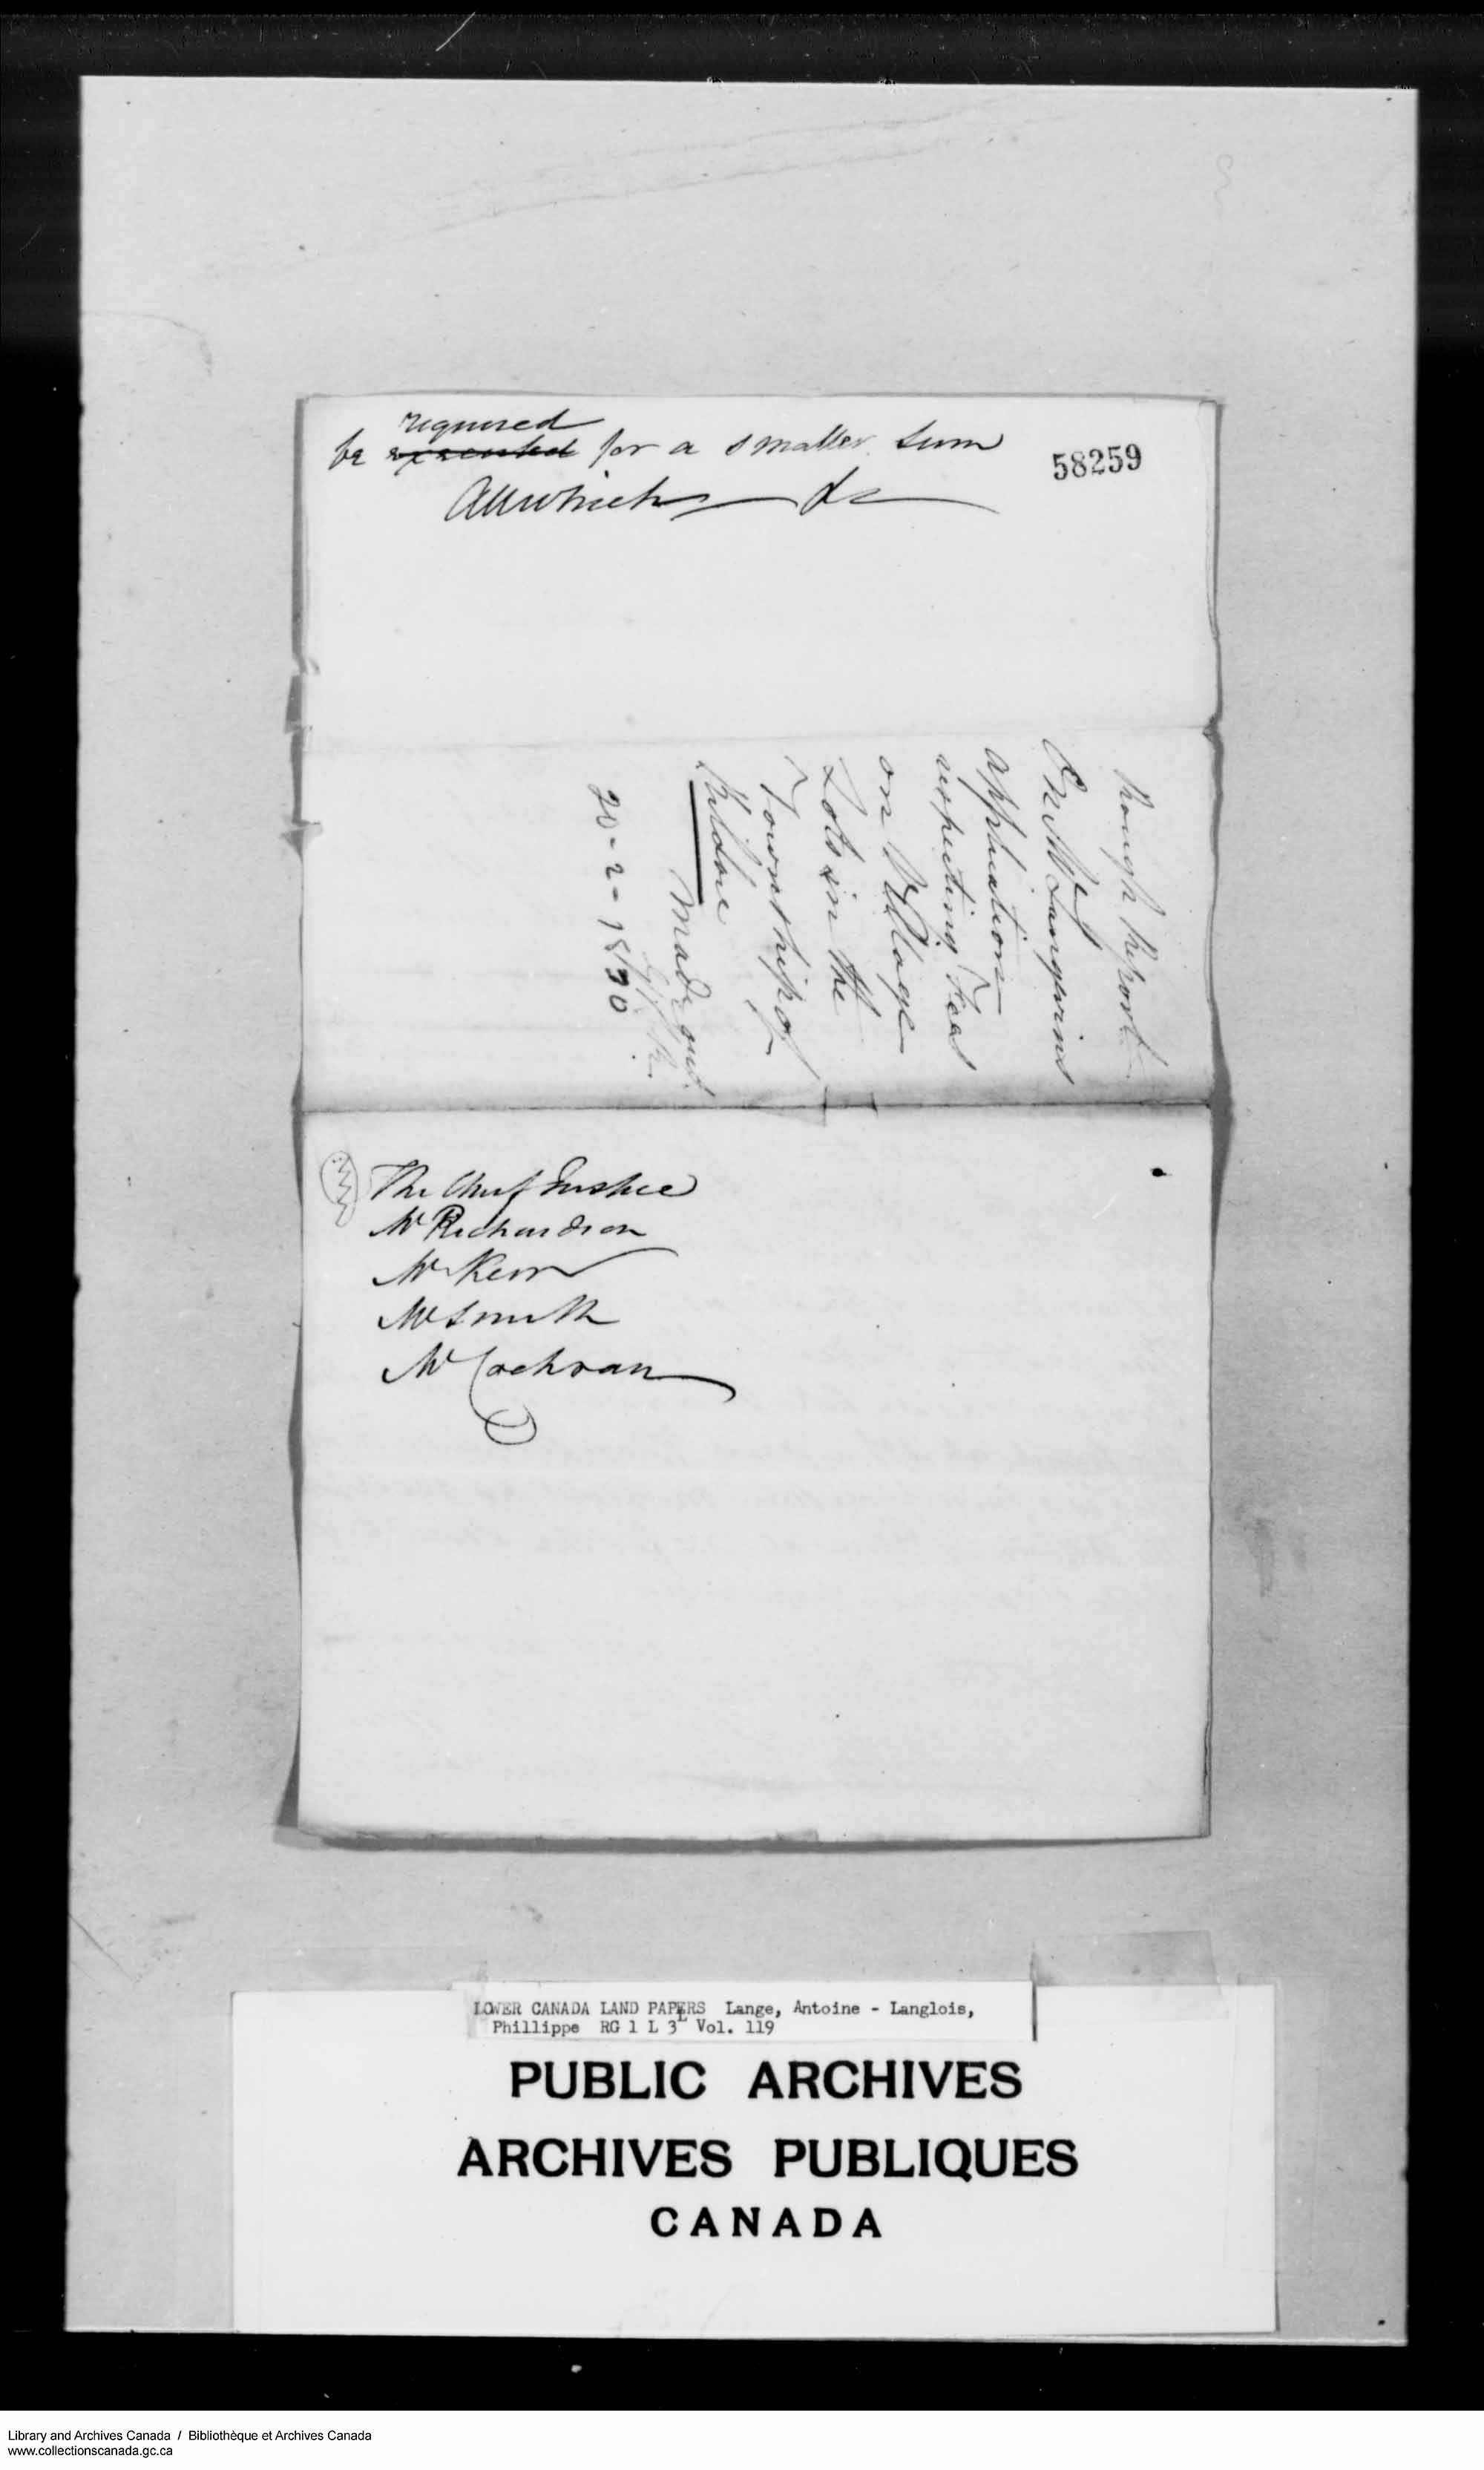 required
be executed for a smaller sum
58259
All which &c
Rough Report
On Mr Languvins
application
respecting Fees
on Village
Lots in the
Township of
Kildare
Made out
20-2-1830
The Chief Justice
Mr Richardson
Mr Kerr
Mr Smith
Mr Cochran
LOWER CANADA LAND PAPERS Lange, Antoine - Langlois,
Phillippe RG 1 L 3L Vol. 119
PUBLIC ARCHIVES
ARCHIVES PUBLIQUES
CANADA
Library and Archives Canada / Bibliothèque et Archives Canada
www.collectionscanada.gc.ca